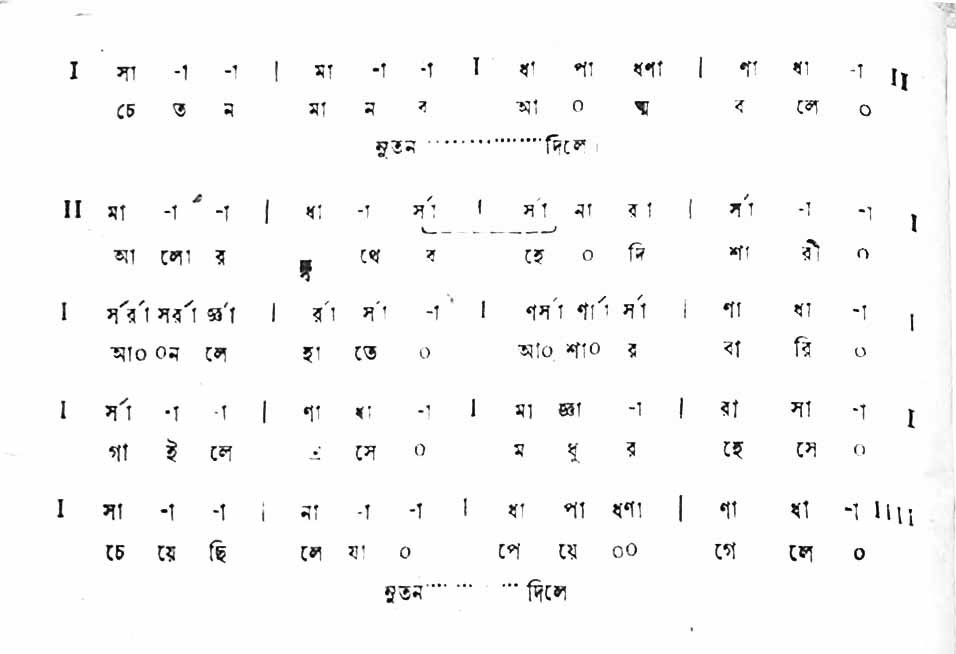 I সা -া -া | মা -া -া I ধা পা ধণা | ণা ধা -া II
চে ত ন মা ন ব আ ০ ত্ম ব লে ০
নুতন ................. দিলে।
II মা -া -া | ধা -া র্সা I র্সা না রা | র্সা -া -া I
আ লো র থে ব হে ০ দি শা রী ০
I র্সর্রা সর্রা র্জ্ঞা | র্রা র্সা -া I ণর্সা ণর্া র্সা | ণা ধা -া I
আ০ ০ন লে হা তে ০ আ০ শা০ র বা রি ০
I র্সা -া -া | ণা ধা -া I মা জ্ঞা -া | রা সা -া I
গা ই লে সে ০ ম ধু র হে সে ০
I সা -া -া | না -া -া I ধা পা ধণা | ণা ধা -া IIII
চে য়ে ছি লে যা ০ পে য়ে ০০ গে লে ০
নুতন .... ... ... দিলে